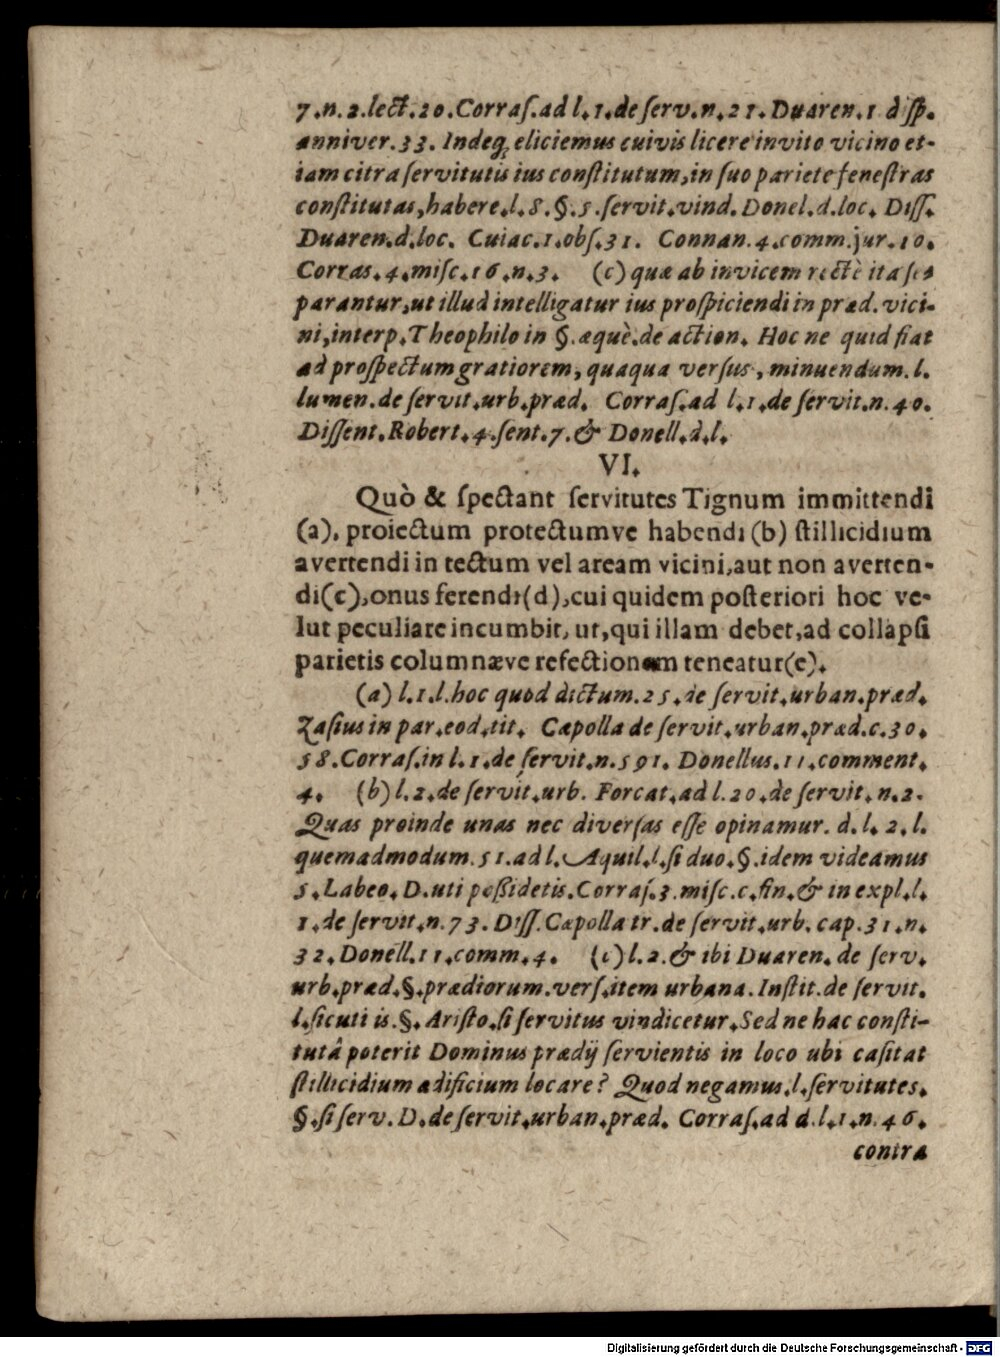 7.n.2.lect.20.Corraſ.ad l.1.de ſerv.n.21.Duaren.1 diſp.
anniver.33. Indeq́; eliciemus cuivis licere invito vicino et-
iam citra ſervitutis ius conſtitutum,in ſuo pariete feneſtras
conſtitutas,habere.l.8.§.5.ſervit.vind. Donel.d.loc. Diſſ.
Duaren.d.loc. Cuiac.1.obſ.31. Connan.4.comm.jur.10.
Corras.4.miſc.16.n.3. (c) quæ ab invicem rectè ita ſe
parantur,ut illud intelligatur ius proſpiciendi in præd.vici-
ni,interp.Theophilo in §.æquè.de action. Hoc ne quid fiat
ad proſpectum gratiorem, quaqua verſus, minuendum.l.
lumen.de ſervit.urb.præd. Corraſ.ad l.1.de ſervit.n.40.
Diſſent.Robert.4.ſent.7.& Donell.d.l.
VI.
Quò & ſpectant ſervitutes Tignum immittendi
(a), proiectum protectumve habendi (b) ſtillicidium
avertendi in tectum vel aream vicini,aut non averten-
di(c),onus ferendi(d),cui quidem poſteriori hoc ve-
lut peculiare incumbit, ut,qui illam debet,ad collapſi
parietis columnæve refectionem teneatur(e).
(a) l.1.l.hoc quod dictum.25.de ſervit.urban.præd.
Zaſius in par.eod.tit. Cæpolla de ſervit.urban.præd.c.30.
58.Corraſ.in l.1.de ſervit.n.591. Donellus.11.comment.
4. (b) l.2.de ſervit.urb. Forcat.ad l.20.de ſervit.n.2.
Quas proinde unas nec diverſas eſſe opinamur. d.l.2.l.
quemadmodum.51.ad l.Aquil.l.ſi duo.§.idem videamus
5.Labeo.D.uti poßidetis.Corraſ.3.miſc.c.fin.& in expl.l.
1.de ſervit.n.73. Diſſ.Cæpolla tr.de ſervit.urb. cap.31.n.
32.Donell.11.comm.4. (c) l.2.& ibi Duaren. de ſerv.
urb.præd.§.prædiorum.verſ.item urbana.Inſtit.de ſervit.
l.ſicuti is.§.Ariſto.ſi ſervitus vindicetur.Sed ne hac conſti-
tutâ poterit Dominus prædij ſervientis in loco ubi caſitat
ſtillicidium ædificium locare? Quod negamus.l.ſervitutes.
§.ſi ſerv.D.de ſervit.urban.præd. Corraſ.ad d.l.1.n.46.
contra
Digitalisierung gefördert durch die Deutsche Forschungsgemeinschaft - DFG